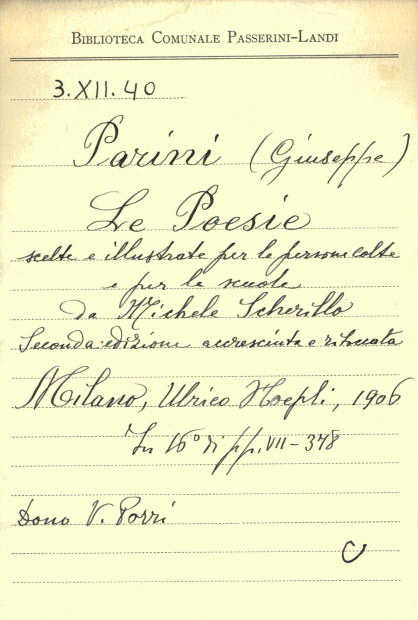 BIBLIOTECA COMUNALE PASSERINI-LANDI
3.XII.40
Parini (Giuseppe)
Le Poesie
scelte e illustrate per le persone colte
e per le scuole
da Michele Scherillo
Seconda edizione accresciuta e ritoccata
Milano, Ulrico Hoepli, 1906
In 16° di pp. VII-378
Dono V. Porri
C